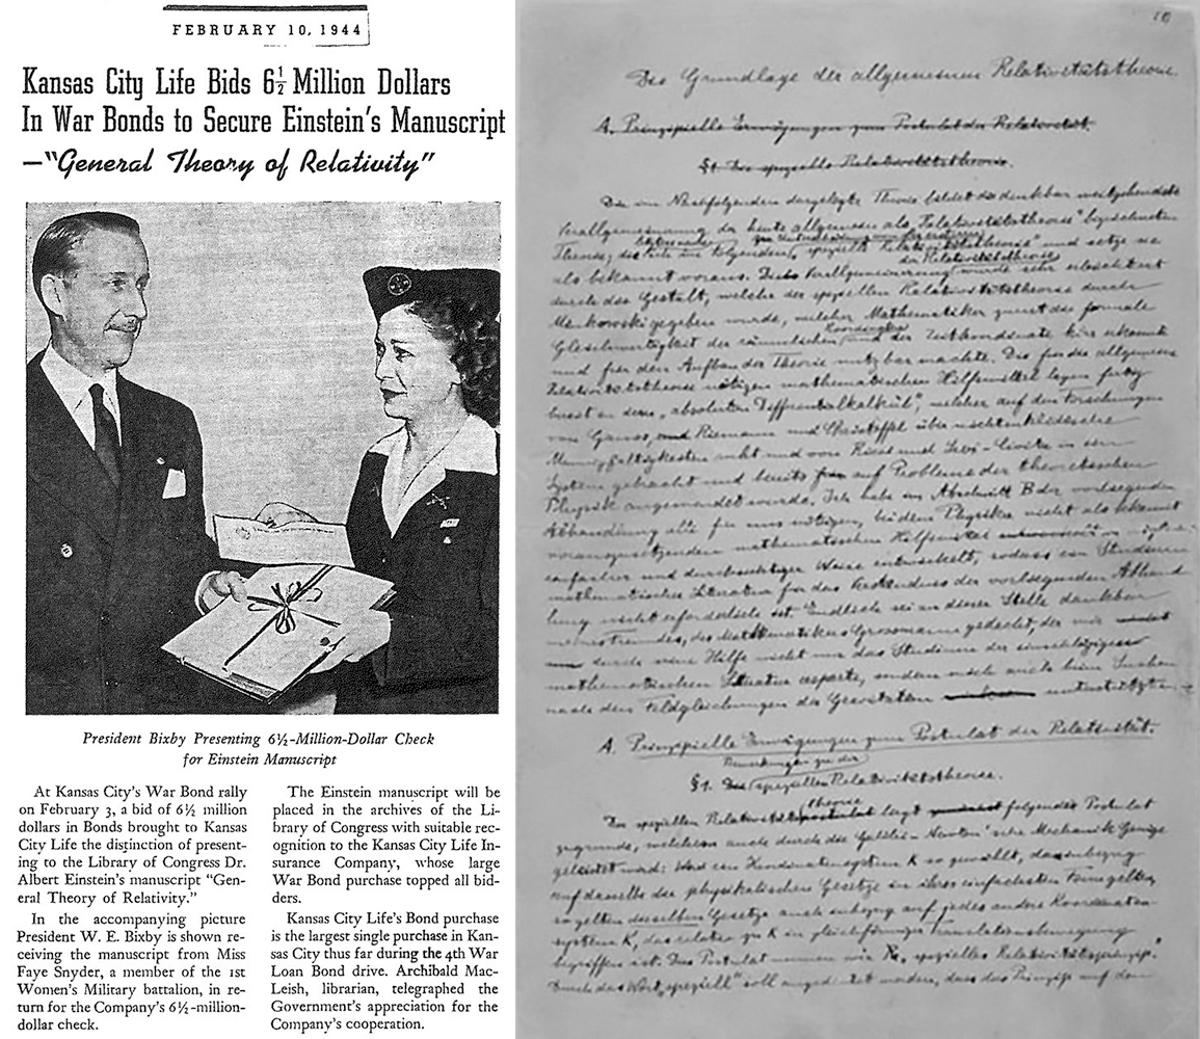 FEBRUARY 10, 1944
Kansas City Life Bids 6½ Million Dollars
In War Bonds to Secure Einstein's Manuscript
—"General Theory of Relativity"
President Bixby Presenting 6½-Million-Dollar Check
for Einstein Manuscript
At Kansas City's War Bond rally
on February 3, a bid of 6½ million
dollars in Bonds brought to Kansas
City Life the distinction of present-
ing to the Library of Congress Dr.
Albert Einstein's manuscript "Gen-
eral Theory of Relativity."
In the accompanying picture
President W. E. Bixby is shown re-
ceiving the manuscript from Miss
Faye Snyder, a member of the 1st
Women's Military battalion, in re-
turn for the Company's 6½-million-
dollar check.
The Einstein manuscript will be
placed in the archives of the Li-
brary of Congress with suitable rec-
ognition to the Kansas City Life In-
surance Company, whose large
War Bond purchase topped all bid-
ders.
Kansas City Life's Bond purchase
is the largest single purchase in Kan-
sas City thus far during the 4th War
Loan Bond drive. Archibald Mac-
Leish, librarian, telegraphed the
Government's appreciation for the
Company's cooperation.
Die Grundlage der allgemeinen Relativitätstheorie.
A. Prinzipielle Erwägungen zum Postulat der Relativität.
§1. Die spezielle Relativitätstheorie.
Die im Nachfolgenden dargelegte Theorie bildet die denkbar weitgehendste
Verallgemeinerung der heute allgemein als „Relativitätstheorie" bezeichneten
Theorie; die im Folgenden „spezielle Relativitätstheorie" und setze sie
der Relativitätstheorie
als bekannt voraus. Die Verallgemeinerung wurde sehr erleichtert
durch die Gestalt, welche der speziellen Relativitätstheorie durch
Minkowski gegeben wurde, welcher Mathematiker zuerst die formale
Gleichwertigkeit der räumlichen Koordinaten und der Zeitkoordinate klar erkannte
und für den Aufbau der Theorie nutzbar machte. Die für die allgemeine
Relativitätstheorie nötigen mathematischen Hilfsmittel lagen fertig
bereit in dem „absoluten Differentialkalkül", welcher auf den Forschungen
von Gauss, und Riemann und Christoffel über nichteuklidische
Mannigfaltigkeiten ruht und von Ricci und Levi-Civita in ein
System gebracht und bereits auf Probleme der theoretischen
Physik angewendet wurde. Ich habe im Abschnitt B der vorliegenden
Abhandlung alle für uns nötigen, bei dem Physiker nicht als bekannt
vorauszusetzenden mathematischen Hilfsmittel in möglichst
einfacher und durchsichtiger Weise entwickelt, sodass ein Studium
mathematischer Literatur für das Verständnis der vorliegenden Abhand
lung nicht erforderlich ist. Endlich sei an dieser Stelle dankbar
meines Freundes, des Mathematikers Grossmann gedacht, der mir
durch seine Hilfe nicht nur das Studium der einschlägigen
mathematischen Literatur ersparte, sondern mich auch beim Suchen
nach den Feldgleichungen der Gravitation unterstützte.
A. Prinzipielle Erwägungen zum Postulat der Relativität.
Bemerkungen zu der
§1. Die speziellen Relativitätstheorie.
theorie
Der speziellen Relativitätspostulat liegt folgendes Postulat
zugrunde, welchem auch durch die Galilei-Newton'sche Mechanik Genüge
geleistet wird: Wird ein Koordinatensystem K so gewählt, dass inbezug
auf dasselbe die physikalischen Gesetze in ihrer einfachsten Form gelten,
so gelten dieselben Gesetze auch inbezug auf jedes andere Koordinaten-
system K', das relativ zu K in gleichförmiger Translationsbewegung
begriffen ist. Dies Postulat nennen wir „spezielles Relativitätsprinzip."
Durch das Wort „speziell" soll angedeutet werden, dass das Prinzip auf den